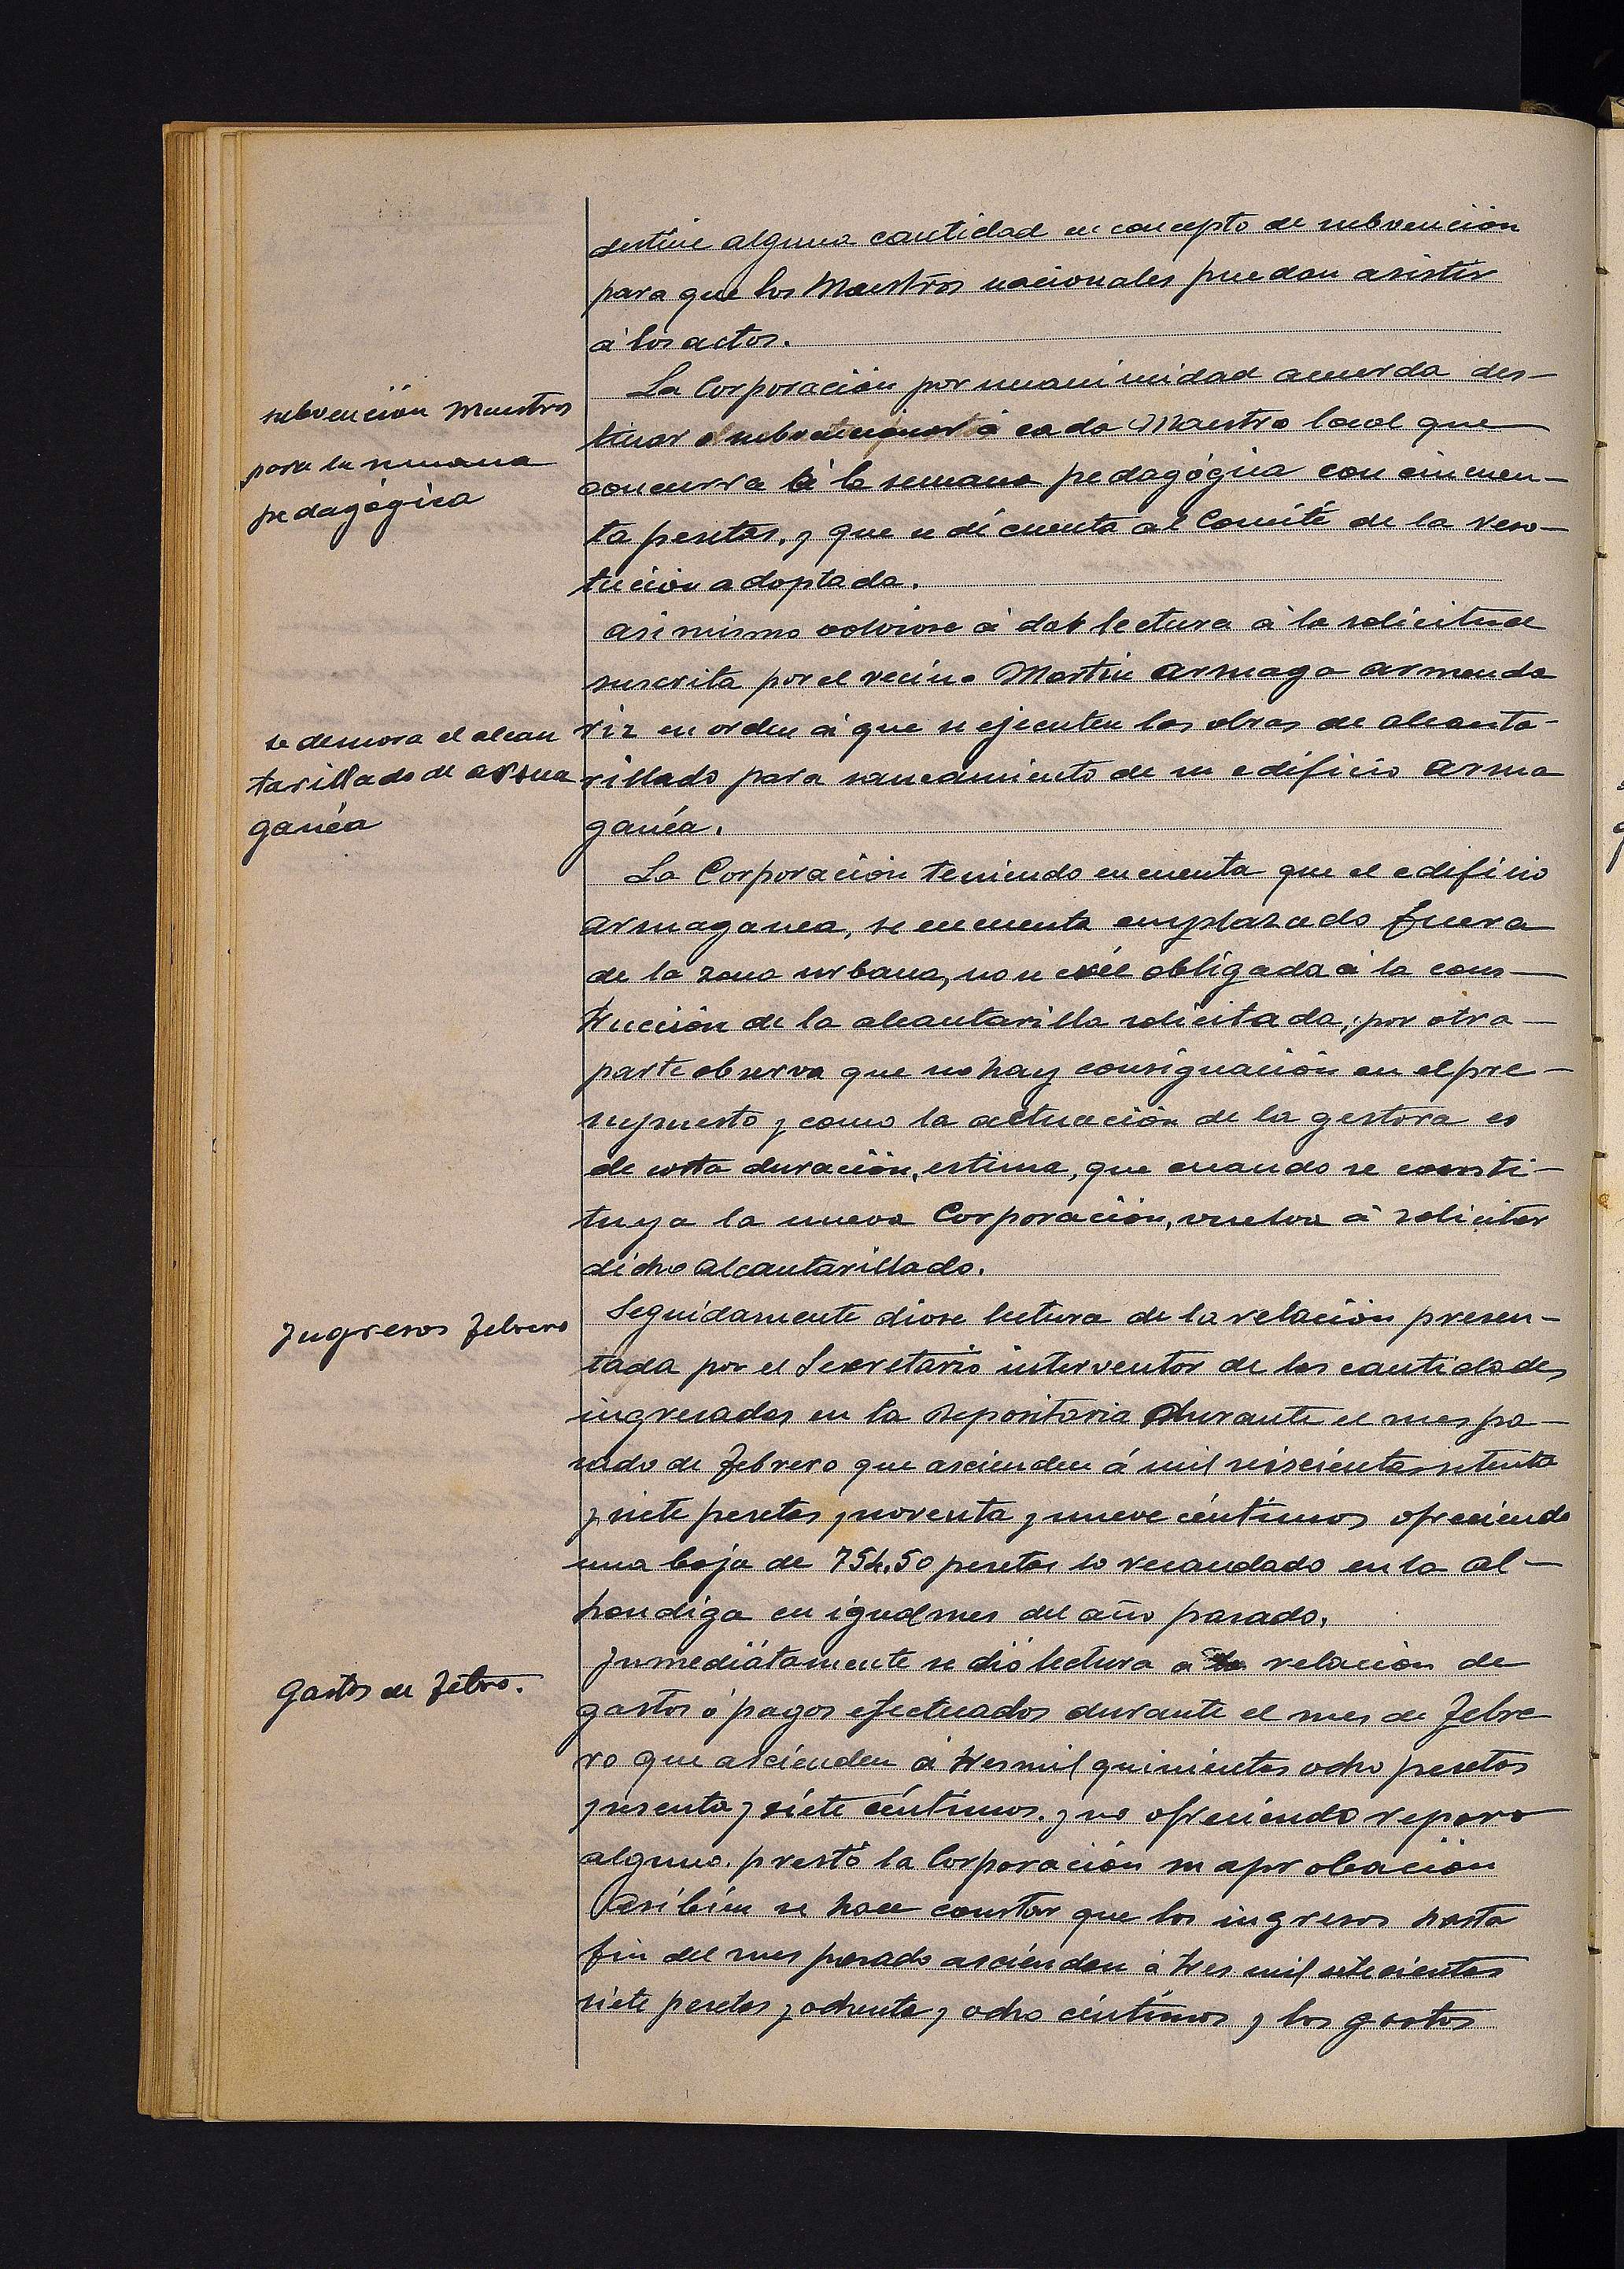 destine alguna cantidad en concepto de subvención
para que los Maestros nacionales puedan asistir
á los actos.
subvención Maestros
para la semana
pedagógica
La Corporación por unanimidad acuerda des-
tinar subvencionar á cada Maestro local que
concurra á la semana pedagógica con cincuen-
ta pesetas, y que se dé cuenta al Comité de la reso-
lución adoptada.
asi mismo volviose á dar lectura á la solicitud
suscrita por el vecino Martin Armaga armenda
se demora el alcan
tarillado de arma
ganéa
riz en orden á que se ejecuten las obras de alcanta-
rillado para saneamiento de su edificio arma
ganéa.
La Corporación teniendo en cuenta que el edificio
armaganea, se encuenta emplazado fuera
de la zona urbana, no se crée obligada á la cons-
trucción de la alcantarilla solicitada; por otra
parte observa que no hay consignación en el pre-
supuesto y como la actuación de la gestora es
de corta duración, estima, que cuando se consti-
tuya la nueva Corporación, vuelva á solicitar
dicho alcantarillado.
Ingresos febrero
Seguidamente diose lectura de la relación presen-
tada por el Secretario interventor de las cantidades
ingresadas en la Depositaria durante el mes pa-
sado de febrero que ascienden á mil seiscientas setenta
y siete pesetas y noventa y nueve céntimos ofreciendo
una baja de 754.50 pesetas lo recaudado en la al-
hondiga en igual mes del año pasado.
Gastos de febro.
Inmediátamente se dió lectura á la relación de
gastos ó pagos efectuados durante el mes de febre
ro que ascienden á tres mil quinientas ocho pesetas
y sesenta y siete céntimos. y no ofreciendo reparo
alguno. prestó la Corporación su aprobación
Asi bien se hace constar que los ingresos hasta
fin del mes pasado ascienden á tres mil setecientas
siete pesetas y ochenta y ocho céntimos y los gastos